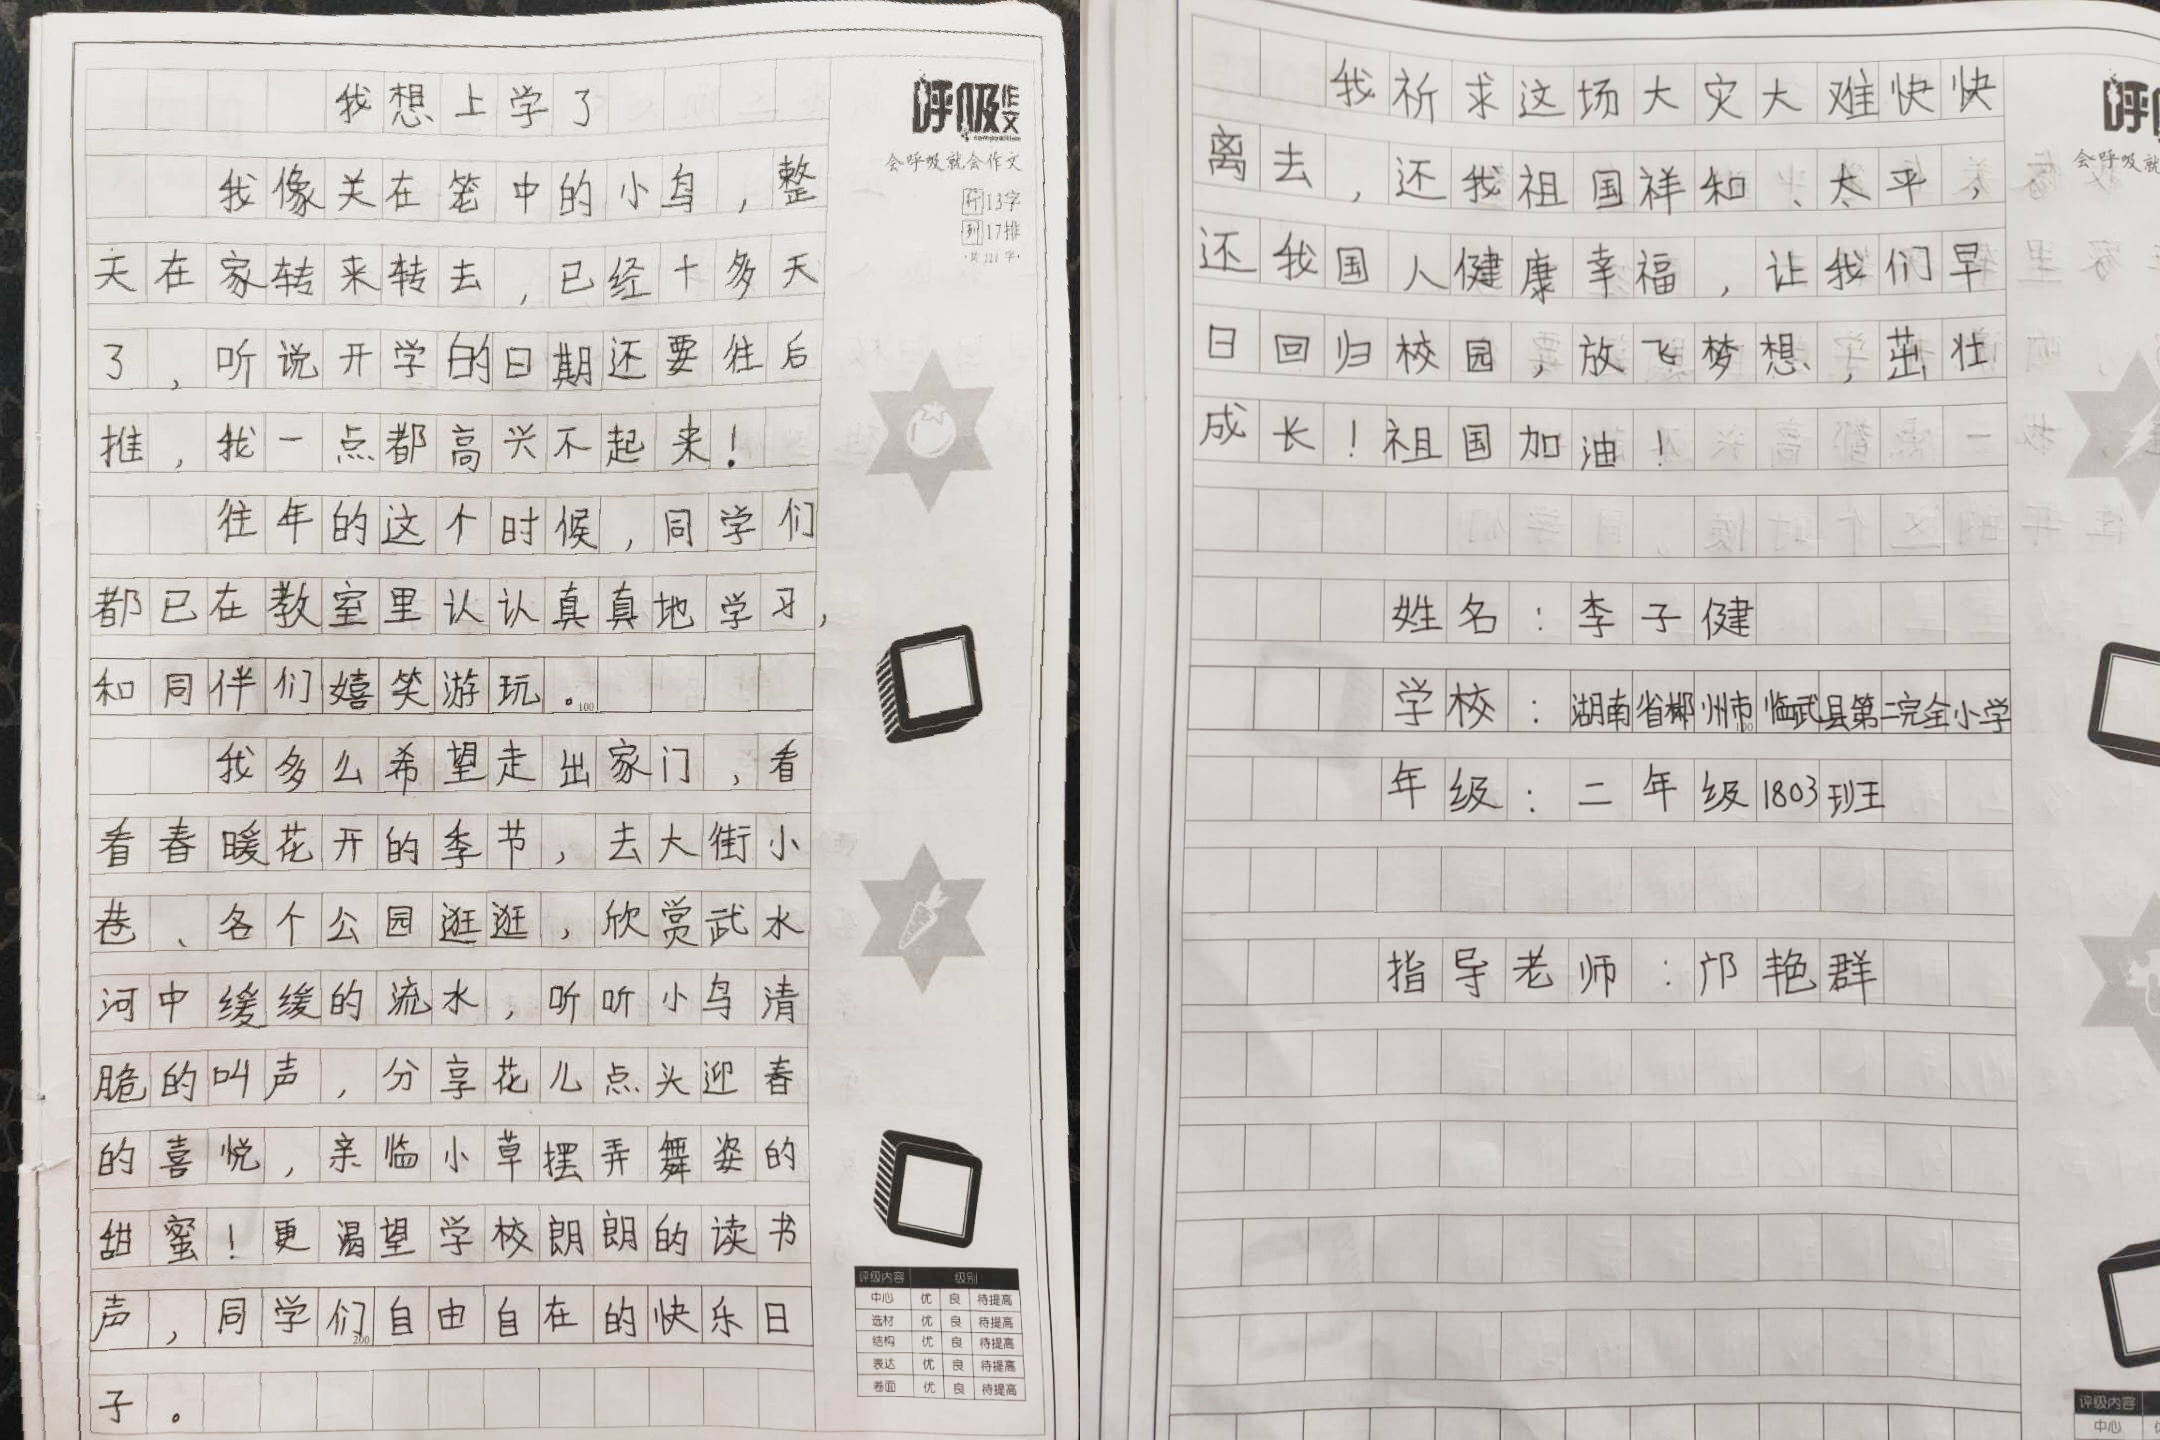 我想上学了
我像关在笼中的小鸟，整
天在家转来转去，已经十多天
了，听说开学的日期还要往后
推，我一点都高兴不起来！
往年的这个时候，同学们
都已在教室里认认真真地学习，
和同伴们嬉笑游玩。
100
我多么希望走出家门，看
看春暖花开的季节，去大街小
巷、各个公园逛逛，欣赏武水
河中缓缓的流水，听听小鸟清
脆的叫声，分享花儿点头迎春
的喜悦，亲临小草摆弄舞姿的
甜蜜！更渴望学校朗朗的读书
声，同学们自由自在的快乐日
200
子。
呼吸作文
会呼吸就会作文
行13字
列17排
共221字
评级内容 级别
中心 优 良 待提高
选材 优 良 待提高
结构 优 良 待提高
表达 优 良 待提高
卷面 优 良 待提高
我祈求这场大灾大难快快
离去，还我祖国祥和、太平，
还我国人健康幸福，让我们早
日回归校园，放飞梦想，茁壮
成长！祖国加油！
姓名：李子健
学校：湖南省郴州市临武县第二完全小学
年级：二年级1803班
指导老师：邝艳群
呼
会呼吸就
评级内容
中心